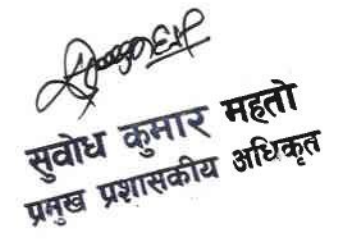 सुवोध कुमार महतो
प्रमुख प्रशासकीय अधिकृत